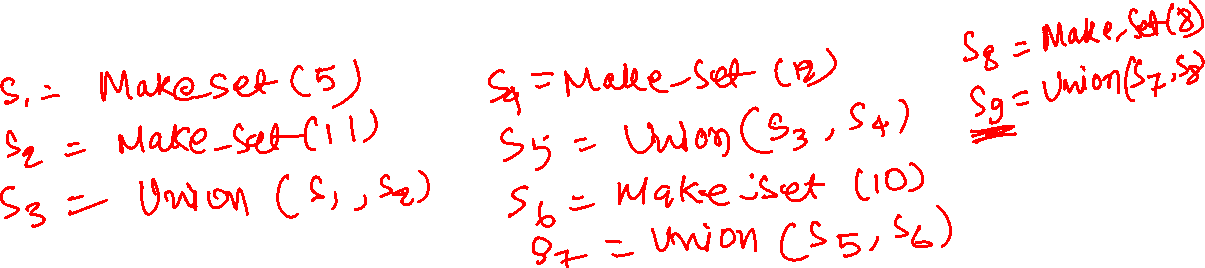 S1 = Make set (5)
S2 = Make-Set (11)
S3 = Union (S1, S2)
S4 = Make-Set (12)
S5 = Union (S3, S4)
S6 = Make set (10)
S7 = Union (S5, S6)
S8 = Make-Set (8)
S9 = Union (S7, S8)